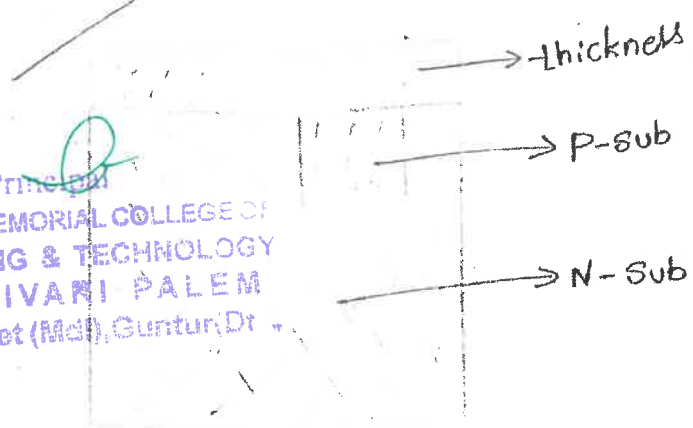 thickness
P-Sub
N-Sub
Principal
EMORIAL COLLEGE OF
NG & TECHNOLOGY
IVARI PALEM
et (Mdl), Guntur (Dt